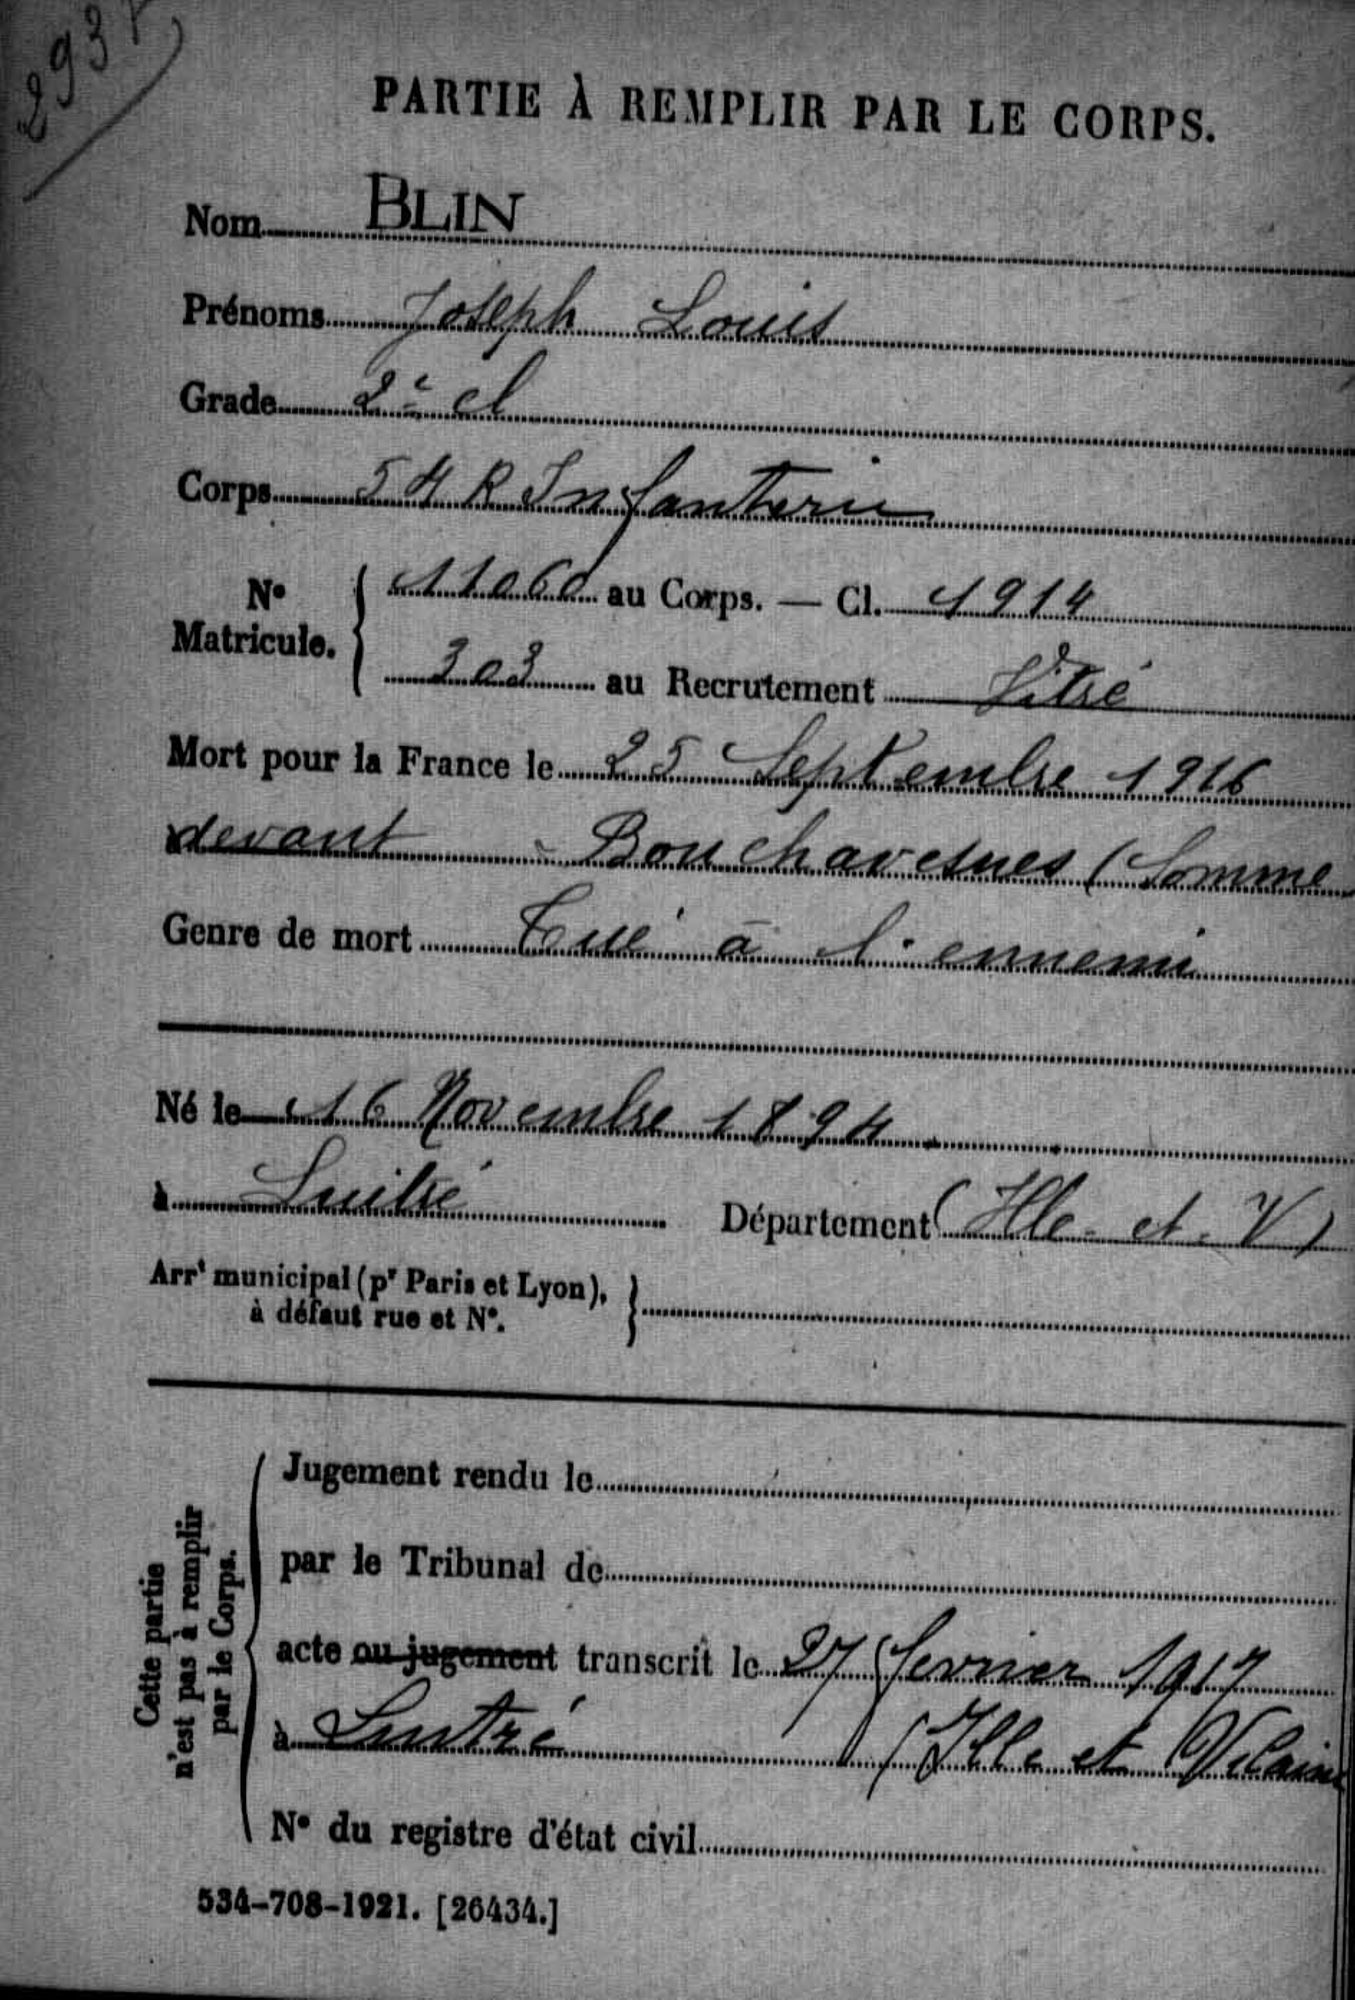 PARTIE À REMPLIR PAR LE CORPS.
Nom BLIN
Prénoms Joseph Louis
Grade 2e cl
Corps 54 R Infanterie
No Matricule. { 11060 au Corps. — Cl. 1914
303 au Recrutement Vitré
Mort pour la France le 25 Septembre 1916
devant Bouchavesnes (Somme
Genre de mort Tué à l'ennemi
Né le 16 Novembre 1894
à Luitré Département (Ille-et-V)
Arrt municipal (pr Paris et Lyon), }
à défaut rue et No.
Cette partie
n'est pas à remplir
par le Corps.
Jugement rendu le
par le Tribunal de
acte ou jugement transcrit le 27 fevrier 1917
à Luitré (Ille et Vilaine
No du registre d'état civil
534-708-1921. [26434.]